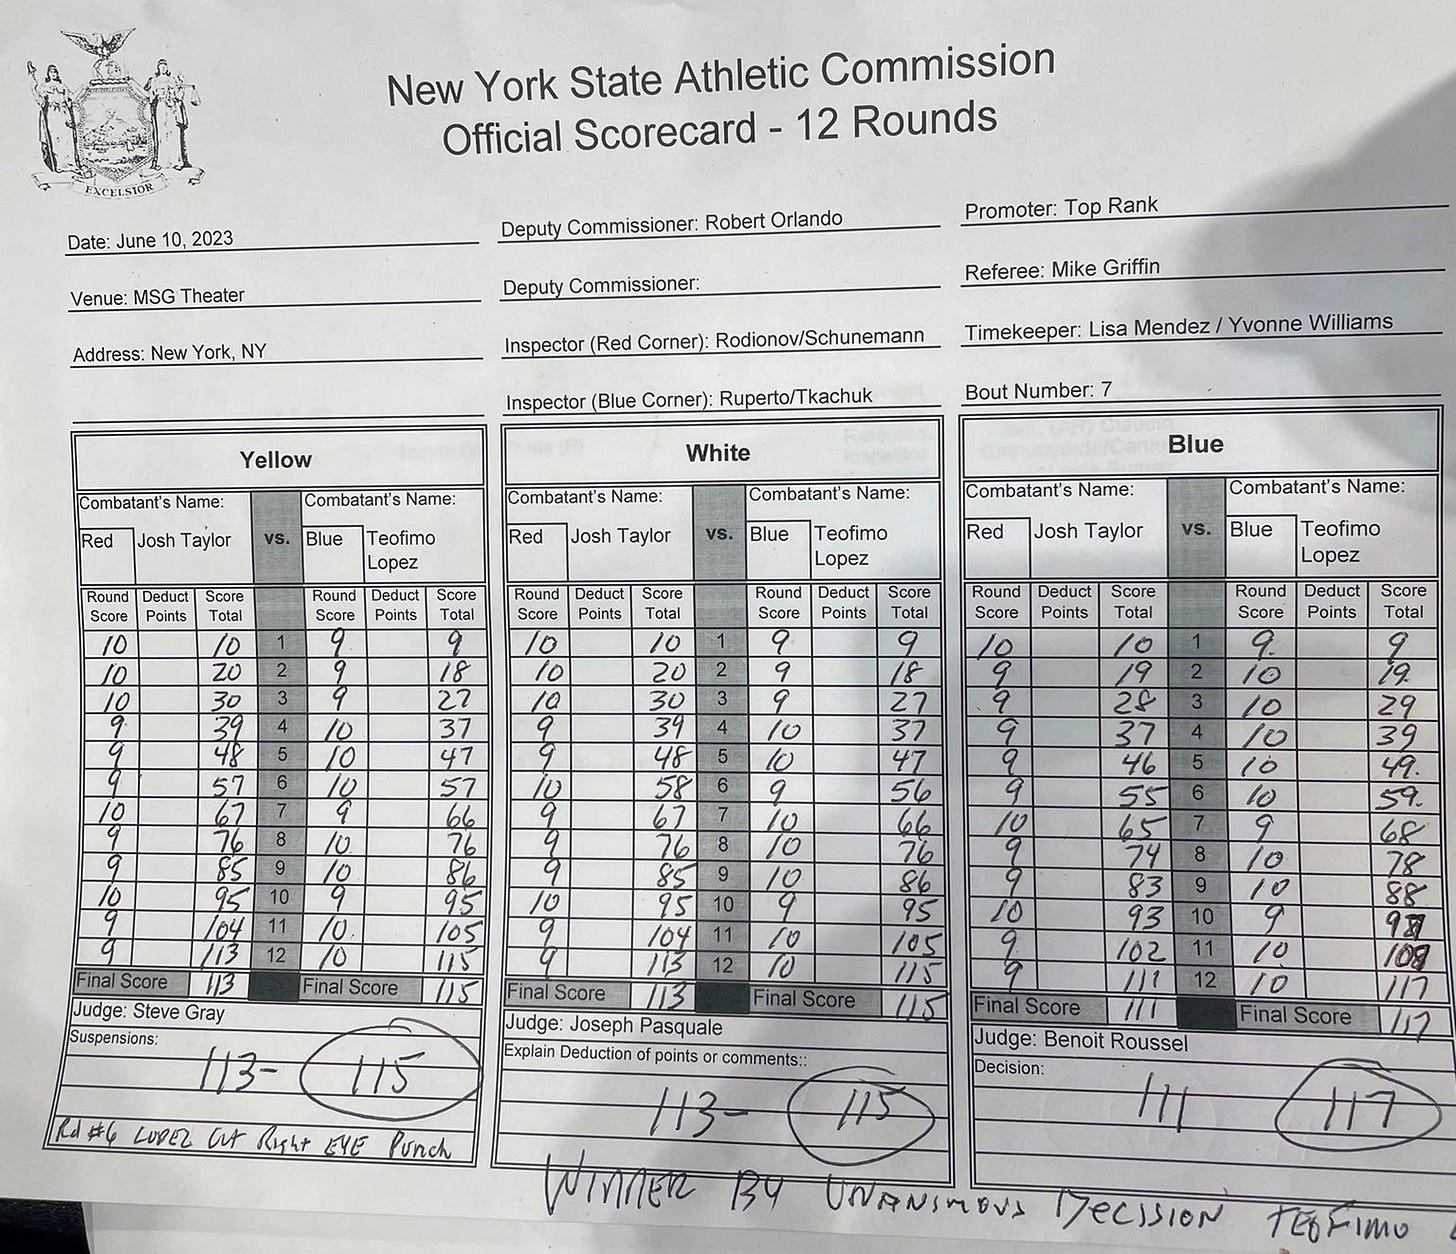 EXCELSIOR
New York State Athletic Commission
Official Scorecard - 12 Rounds
Date: June 10, 2023 Deputy Commissioner: Robert Orlando Promoter: Top Rank
Venue: MSG Theater Deputy Commissioner: Referee: Mike Griffin
Address: New York, NY Inspector (Red Corner): Rodionov/Schunemann Timekeeper: Lisa Mendez / Yvonne Williams
Inspector (Blue Corner): Ruperto/Tkachuk Bout Number: 7
Yellow
Combatant's Name: vs. Combatant's Name:
Red Josh Taylor Blue Teofimo
Lopez
Round Deduct Score Round Deduct Score
Score Points Total Score Points Total
10 10 1 9 9
10 20 2 9 18
10 30 3 9 27
9 39 4 10 37
9 48 5 10 47
9 57 6 10 57
10 67 7 9 66
9 76 8 10 76
9 85 9 10 86
10 95 10 9 95
9 104 11 10 105
9 113 12 10 115
Final Score 113 Final Score 115
Judge: Steve Gray
Suspensions:
113- 115
Rd #6 LOPEZ CUT Right EYE Punch
White
Combatant's Name: vs. Combatant's Name:
Red Josh Taylor Blue Teofimo
Lopez
Round Deduct Score Round Deduct Score
Score Points Total Score Points Total
10 10 1 9 9
10 20 2 9 18
10 30 3 9 27
9 39 4 10 37
9 48 5 10 47
10 58 6 9 56
9 67 7 10 66
9 76 8 10 76
9 85 9 10 86
10 95 10 9 95
9 104 11 10 105
9 113 12 10 115
Final Score 113 Final Score 115
Judge: Joseph Pasquale
Explain Deduction of points or comments::
113- 115
Blue
Combatant's Name: vs. Combatant's Name:
Red Josh Taylor Blue Teofimo
Lopez
Round Deduct Score Round Deduct Score
Score Points Total Score Points Total
10 10 1 9 9
9 19 2 10 19
9 28 3 10 29
9 37 4 10 39
9 46 5 10 49
9 55 6 10 59
10 65 7 9 68
9 74 8 10 78
9 83 9 10 88
10 93 10 9 97
9 102 11 10 108
9 111 12 10 117
Final Score 111 Final Score 117
Judge: Benoit Roussel
Decision:
111 117
WINNER BY UNANIMOUS DECISION TEOFIMO